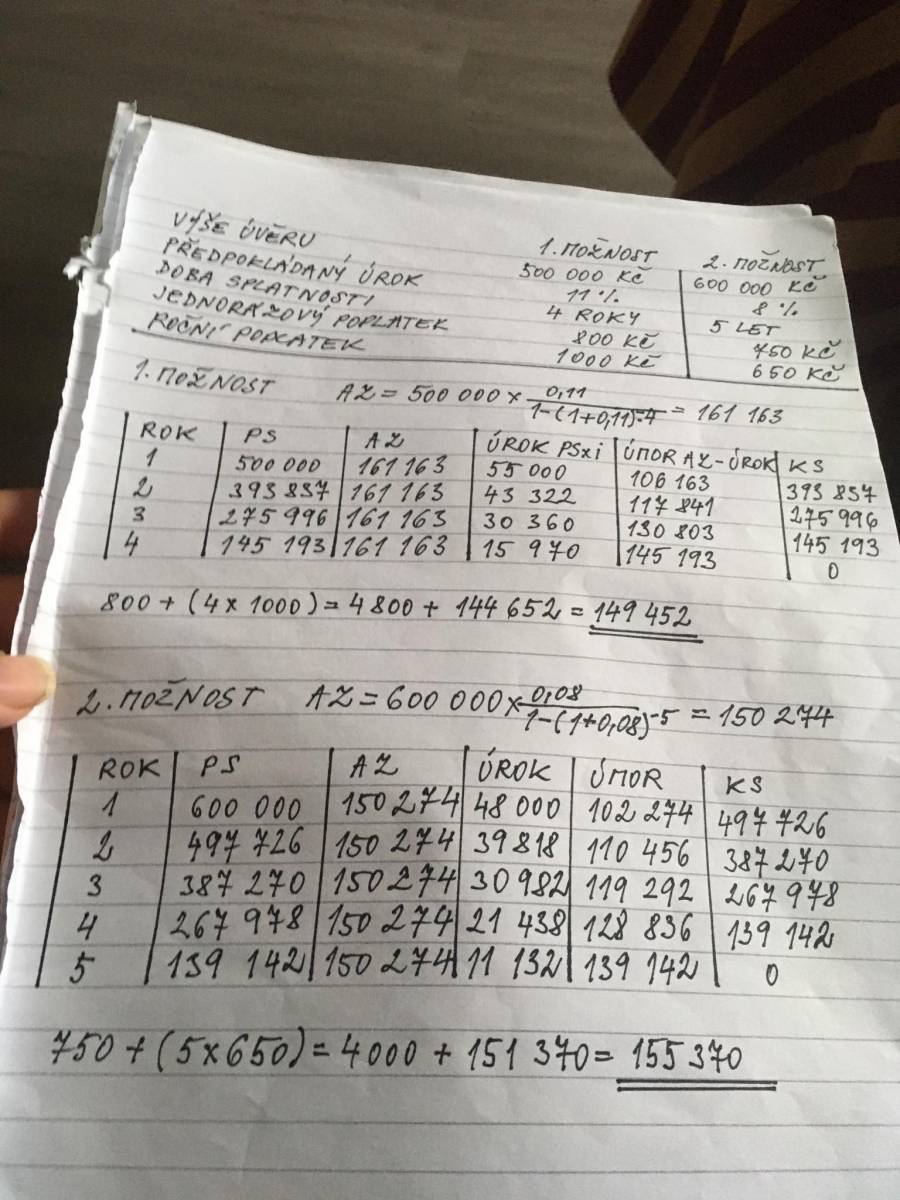 1. MOŽNOST 2. MOŽNOST
VÝŠE ÚVĚRU 500 000 KČ 600 000 KČ
PŘEDPOKLÁDANÝ ÚROK 11 % 8 %
DOBA SPLATNOSTI 4 ROKY 5 LET
JEDNORÁZOVÝ POPLATEK 800 KČ 750 KČ
ROČNÍ POPLATEK 1000 KČ 650 KČ
1. MOŽNOST AZ = 500 000 × 0,11 / 1-(1+0,11)-4 = 161 163
ROK PS AZ ÚROK PSxi ÚMOR AZ-ÚROK KS
1 500 000 161 163 55 000 106 163 393 837
2 393 837 161 163 43 322 117 841 275 996
3 275 996 161 163 30 360 130 803 145 193
4 145 193 161 163 15 970 145 193 0
800 + (4 x 1000) = 4 800 + 144 652 = 149 452
2. MOŽNOST AZ = 600 000 × 0,08 / 1-(1+0,08)-5 = 150 274
ROK PS AZ ÚROK ÚMOR KS
1 600 000 150 274 48 000 102 274 497 726
2 497 726 150 274 39 818 110 456 387 270
3 387 270 150 274 30 982 119 292 267 978
4 267 978 150 274 21 438 128 836 139 142
5 139 142 150 274 11 132 139 142 0
750 + (5x650) = 4 000 + 151 370 = 155 370